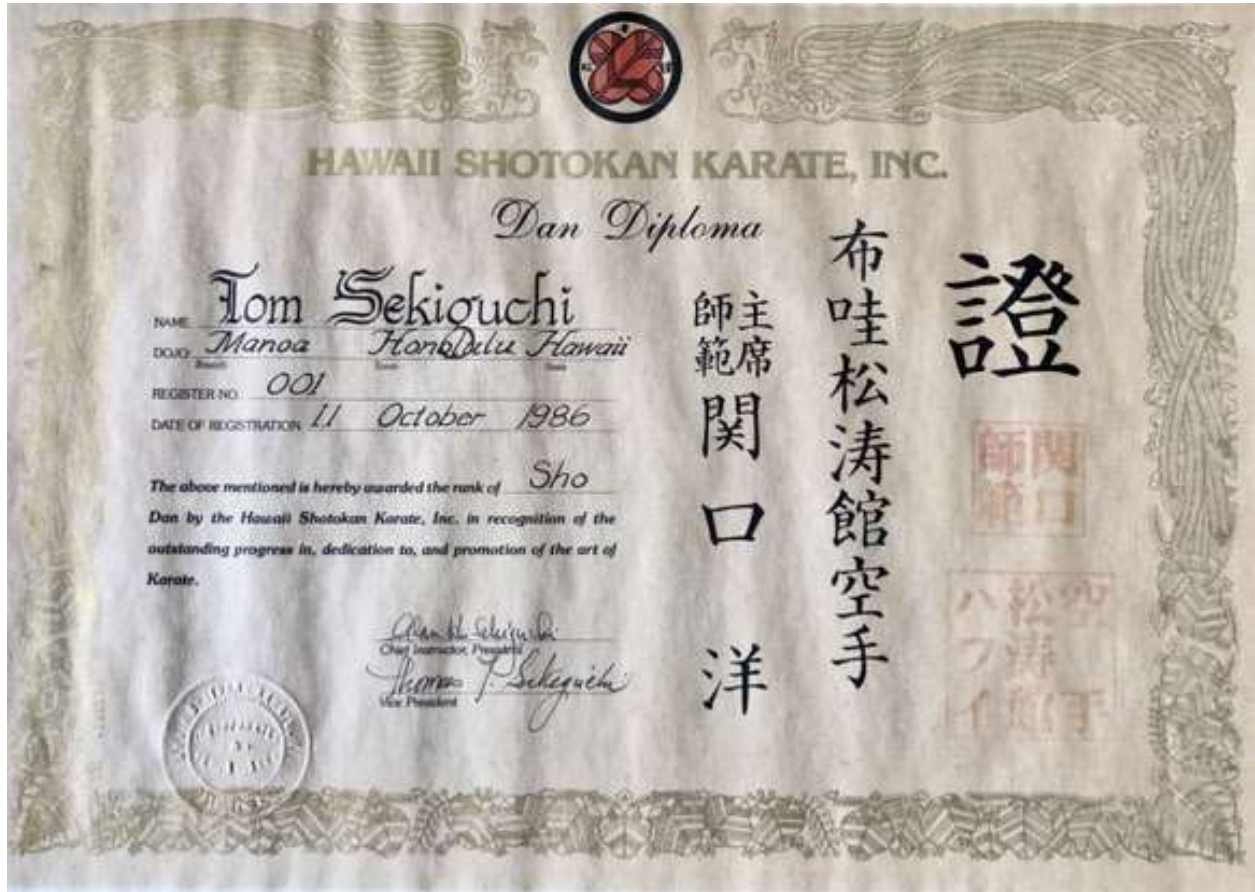 HAWAII SHOTOKAN KARATE, INC.
Dan Diploma
NAME Tom Sekiguchi
DOJO Manoa Honolulu Hawaii
Branch Town State
REGISTER NO. 001
DATE OF REGISTRATION 11 October 1986
The above mentioned is hereby awarded the rank of Sho
Dan by the Hawaii Shotokan Karate, Inc. in recognition of the
outstanding progress in, dedication to, and promotion of the art of
Karate.
Chief Instructor, President
Thomas Y. Sekiguchi
Vice President
證
布哇松涛館空手
主席
師範
関口洋
関口
師範
空手
松涛館
ハワイ